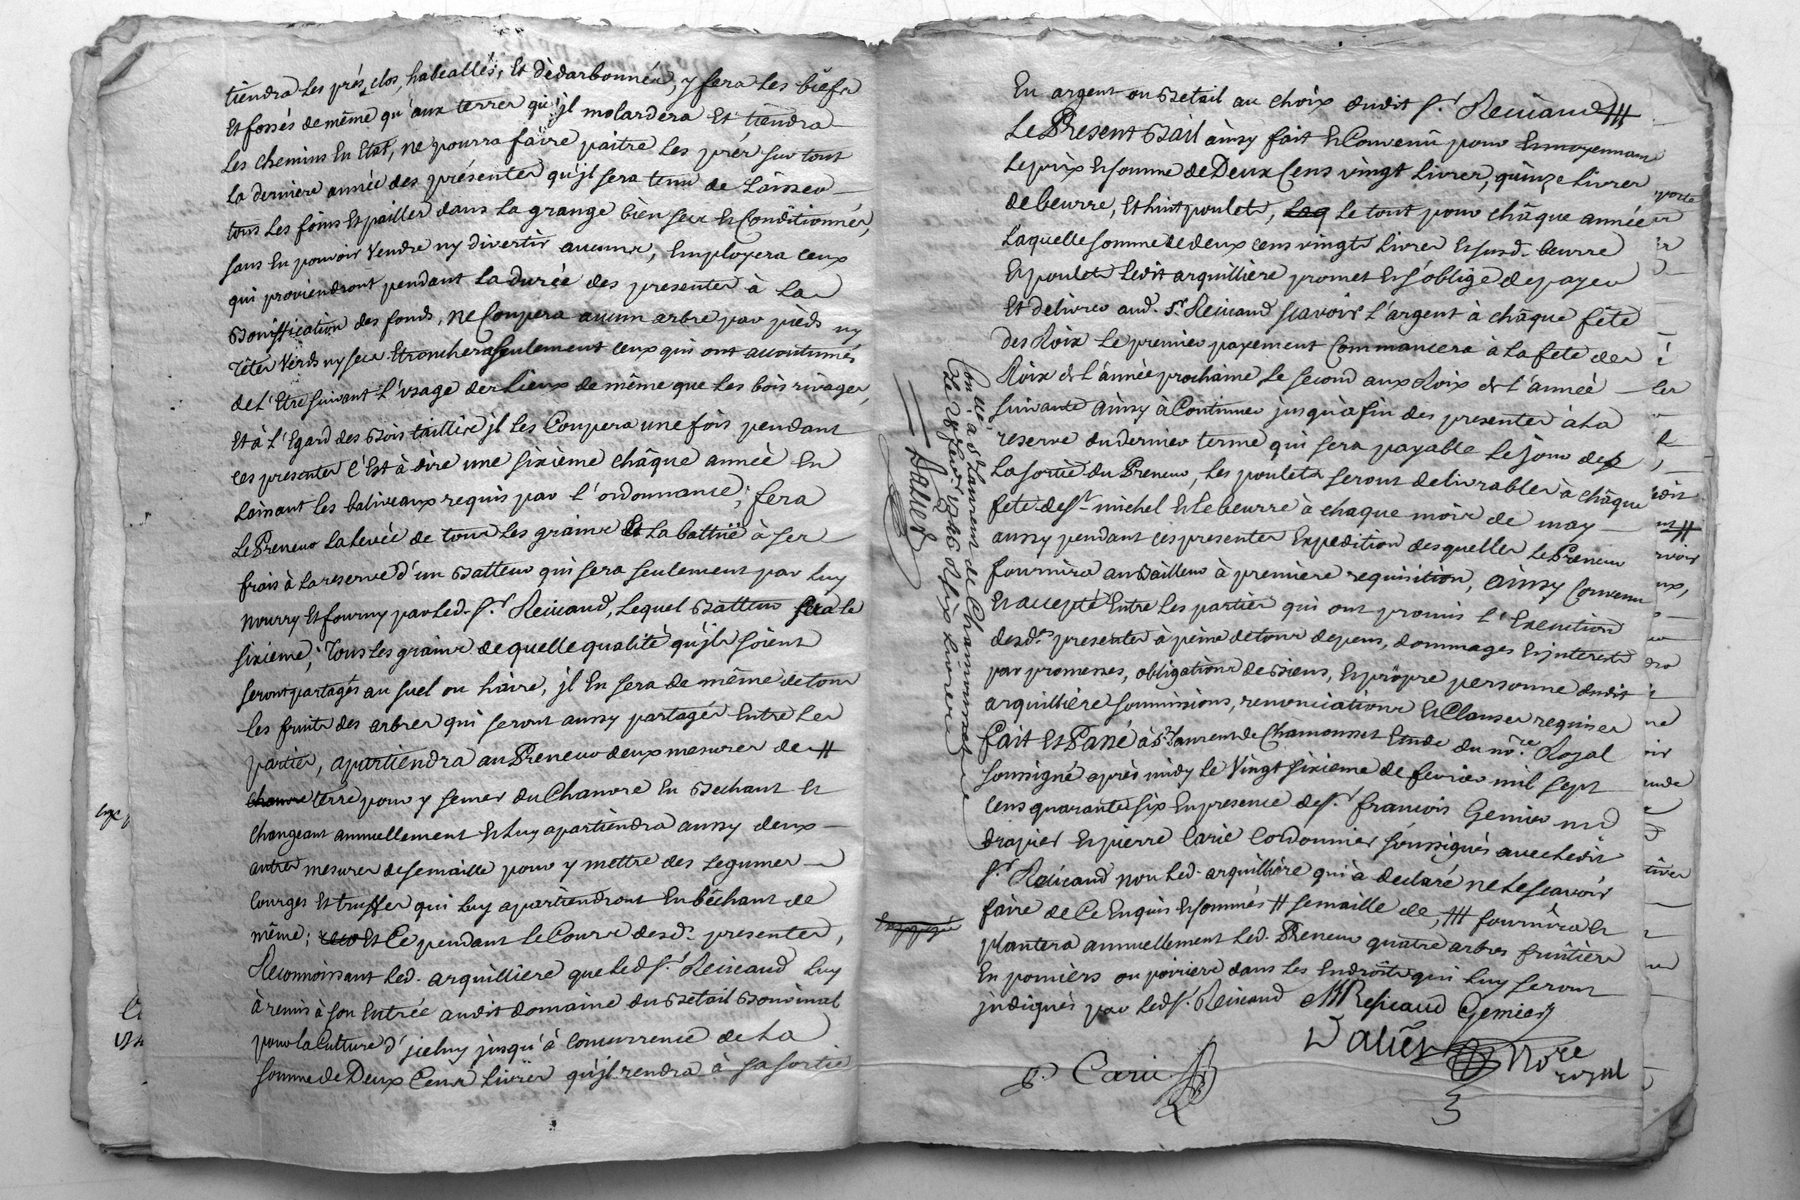 tiendra les prés clos, habealles, et dèdarbonnés, y fera les biefs
et fossés de même qu'aux terres qu'jl molardera et tiendra
les chemins en etat, ne pourra faire paitre les prés sur tout
la derniere année des présentes qu'jl sera tenu de laisser
tous les foins et pailles dans la grange bien secs et conditionnés,
sans en pouvoir vendre ny divertir aucuns, employera ceux
qui proviendront pendant la durée des presentes à la
bonification des fonds, ne coupera aucun arbre par pieds ny
têtes verds ny secs et tronchera seulement ceux qui ont accoutumés
de l'etre suivant l'usage des lieux de même que les bois rivages,
et à l'egard des bois taillire jl les coupera une fois pendant
ces presentes c'est à dire une sixieme châque année en
laissant les baliveaux requis par l'ordonnance; fera
le preneur la levée de tous les grains et la battüe à ses
frais à la reserve d'un batteur qui sera seulement par luy
nourry et fourny par led. Sr. Reiicaud, lequel batteur fera le
sixieme; tous les grains de quelle qualité qu'jls soient
seront partagés au suel ou haire, jl en sera de même de tous
les fruits des arbres qui seront aussy partagés entre les
parties, apartiendra au preneur deux mesures de #
chanvre terre pour y semer du chanvre en bechant et
changeant annuellement et luy apartiendra aussy deux
autres mesures de semaille pour y mettre des legumes
courges et truffes qui luy apartiendront en bêchant de
même; et ce pendant le cours desd. presentes,
reconnoissant led. arquilliere que led. Sr. Reiicaud luy
à remis à son entrée audit domaine du betail bouvinal
pour la culture d'jceluy jusqu'à concurrence de la
somme de deux cens livres qu'jl rendra à sa sortie
en argent ou betail au choix dudit Sr. Reiicaud ###
le present bail ainsy fait et convenu pour et moyennant
le prix et somme de deux cens vingt livres, quinze livres
de beurre, et huit poulets, laq le tout pour châque année
laquelle somme de deux cens vingts livres et susd. beurre
et poulets ledit arquilliere promet et s'oblige de payer
et delivrer aud. Sr. Reiicaud scavoir l'argent à châque fête
des Roix le premier payement commancera à la fete des
Roix de l'année prochaine le second aux Roix de l'année
suivante ainsy à continuer jusqu'à fin des presentes à la
reserve du dernier terme qui sera payable le jour de
la sortie du preneur, les poulets seront delivrables à châque
fete de St. michel et le beurre à chaque mois de may
aussy pendant ces presentes expedition desquelles le preneur
fournira au bailleur à première requisition, ainsy convenu
et accepté entre les parties qui ont promis l'execution
desd. presentes à peine de tous depens, dommages et jnterests
par promesses, obligations de biens, et propre personne dudit
arquilliere soumissions, renonciations et clauses requises
fait et passé à St. Laurent de Chamousset etude du nore. Royal
soussigné après midy le vingt sixieme de fevrier mil sept
cens quarante six en presence de Sr. francois Genier md
drapier et pierre Carie cordonnier soussignés avec ledit
Sr. Reiicaud non led. arquilliere qui à declaré ne le scavoir
faire de ce enquis et sommés # semaille de, ### fournira et
plantera annuellement led. preneur quatre arbres fruitiers
en pomiers ou poiriers dans les endroits qui luy seront
jndiqués par led. Sr. Reiicaud Reiicaud Genier
P. Carie
nore
royal
Conlé à St. Laurent de Chamousset